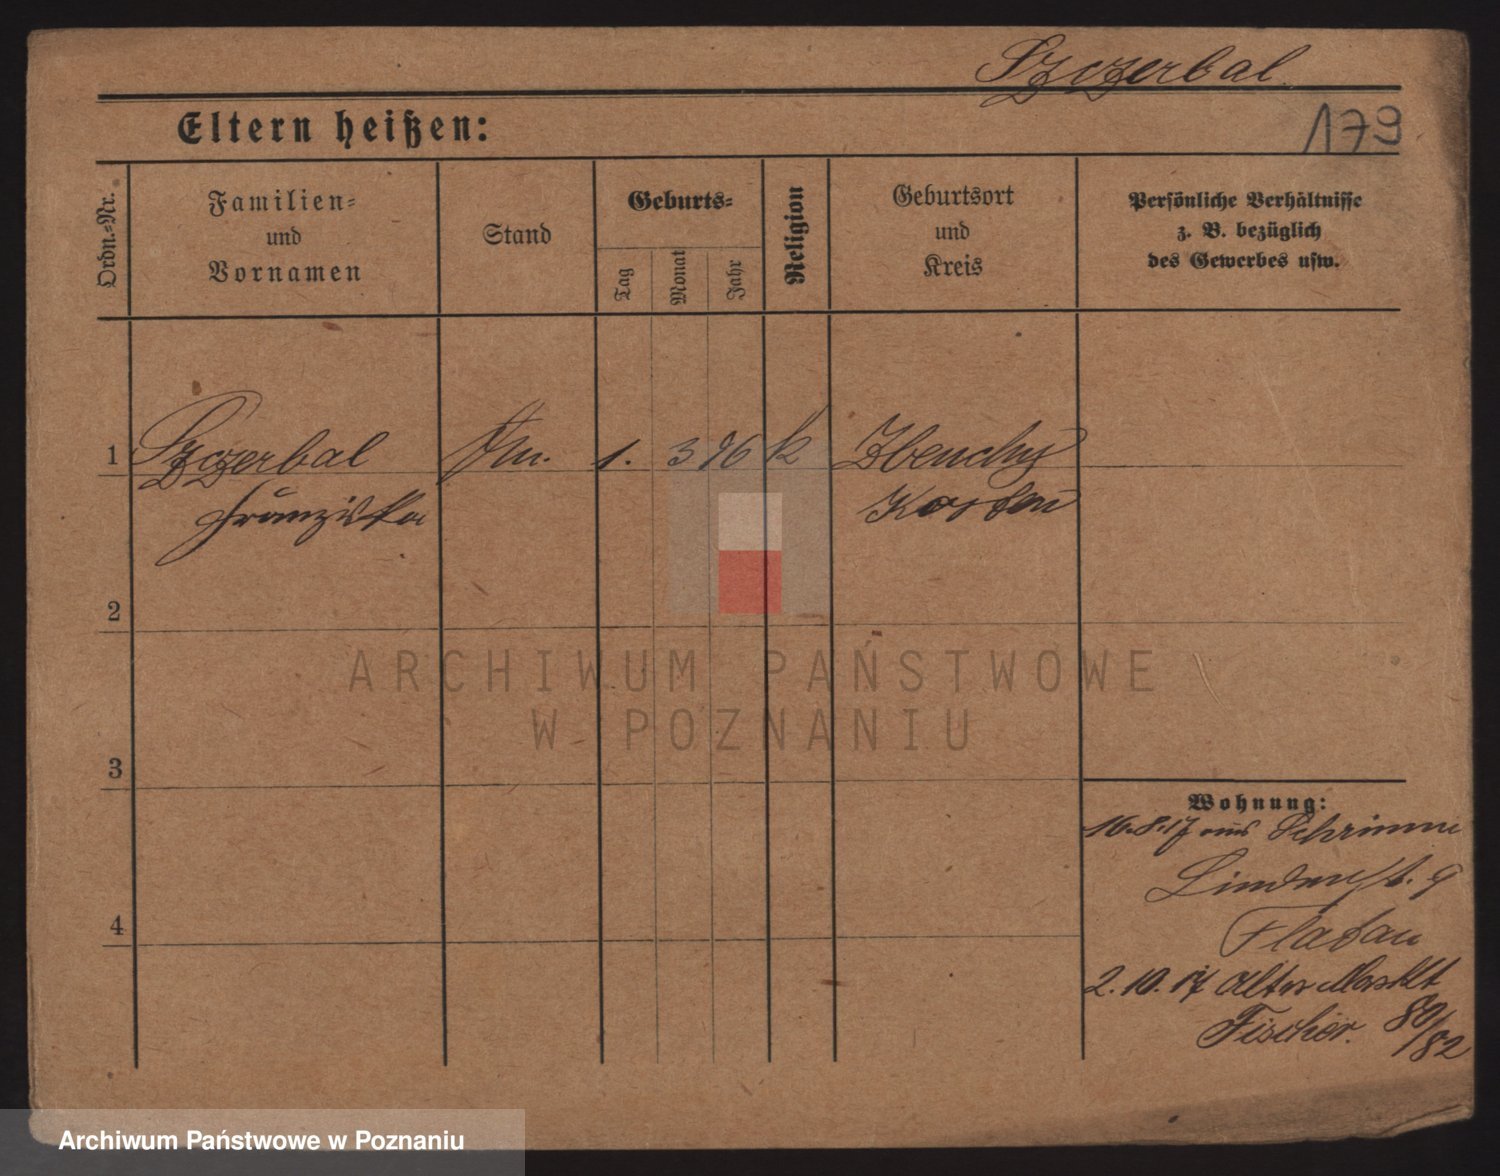 Szczerbal
179
Eltern heißen:
Ordn.-Nr.
Familien-
und
Vornamen
Stand
Geburts-
Tag
Monat
Jahr
Religion
Geburtsort
und
Kreis
Persönliche Verhältnisse
z. B. bezüglich
des Gewerbes usw.
1 Szczerbal 1. 3 96 k Zbenchy
Franziska Kosten
2
3
4
Wohnung:
16.8.17 aus Schrimm
Lindenst. 9
Fladau
2.10.17 Alter Markt
Fischer. 80/82
ARCHIWUM PAŃSTWOWE
W POZNANIU
Archiwum Państwowe w Poznaniu